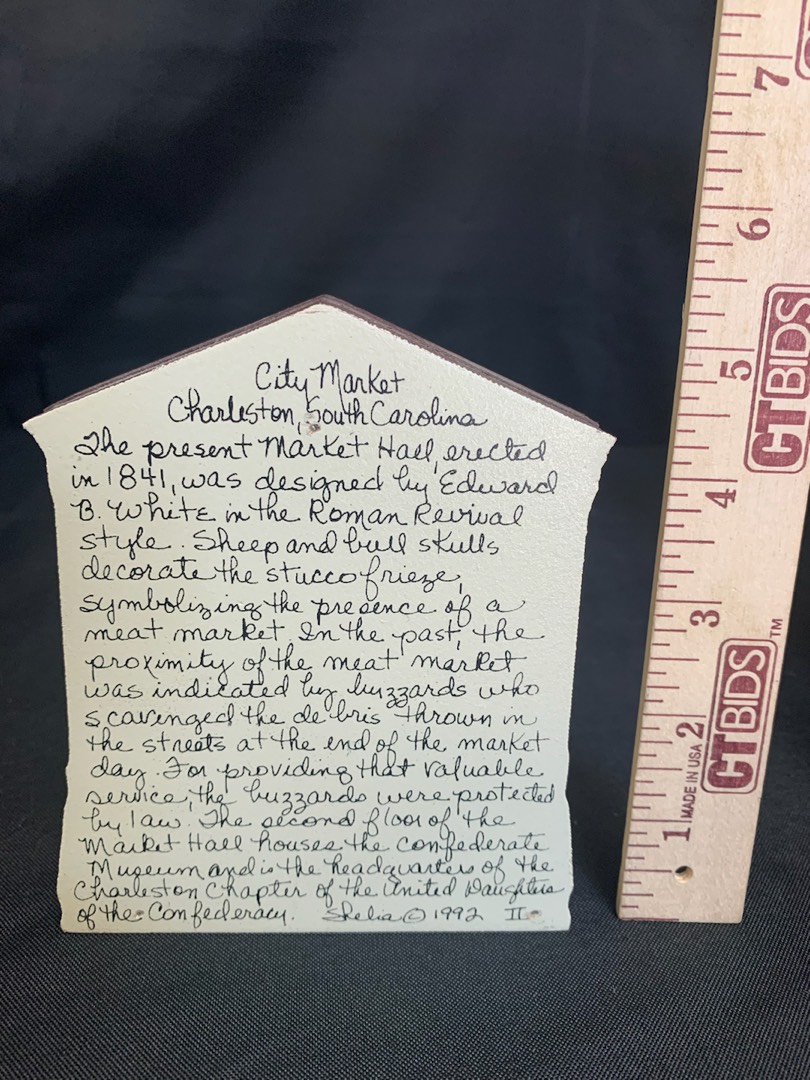 City Market
Charleston, South Carolina
The present Market Hall, erected
in 1841, was designed by Edward
B. White in the Roman Revival
style. Sheep and bull skulls
decorate the stucco frieze,
symbolizing the presence of a
meat market. In the past, the
proximity of the meat market
was indicated by buzzards who
scavenged the debris thrown in
the streets at the end of the market
day. For providing that valuable
service, the buzzards were protected
by law. The second floor of the
Market Hall houses the Confederate
Museum and is the headquarters of the
Charleston Chapter of the United Daughters
of the Confederacy. Shelia © 1992 II
7
6
5
CTBIDS
4
3
CTBIDS™
2
MADE IN USA
1
CT